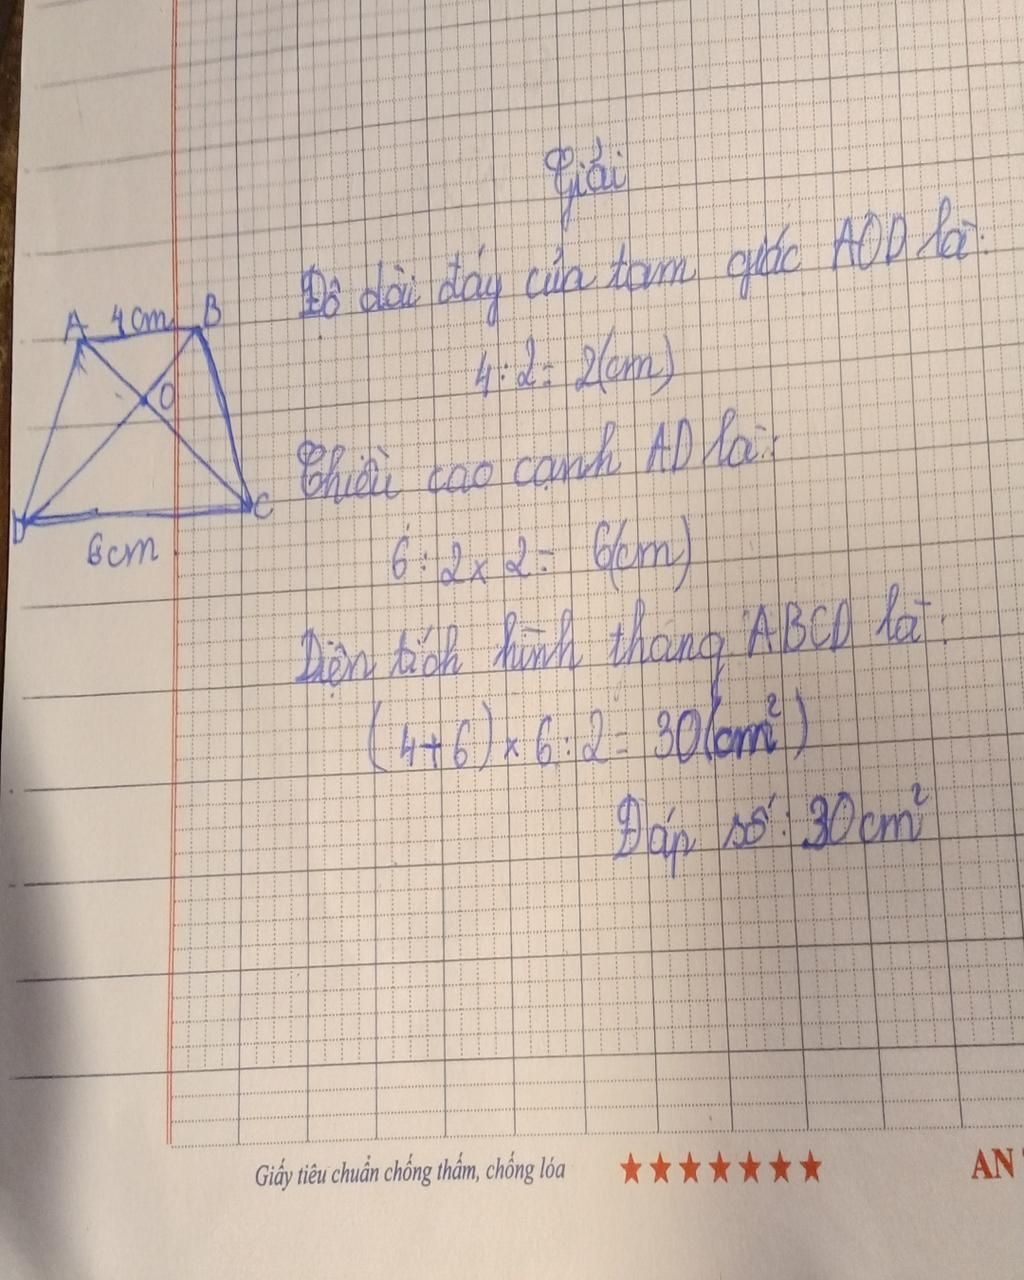 Giải
Độ dài đáy của tam giác AOD là:
A 4cm B
4:2= 2(cm)
O
Chiều cao cạnh AD là:
D C
6cm
6:2×2= 6(cm)
Diện tích hình thang ABCD là:
(4+6)×6:2= 30(cm²)
Đáp số: 30cm²
Giấy tiêu chuẩn chống thấm, chống lóa
AN